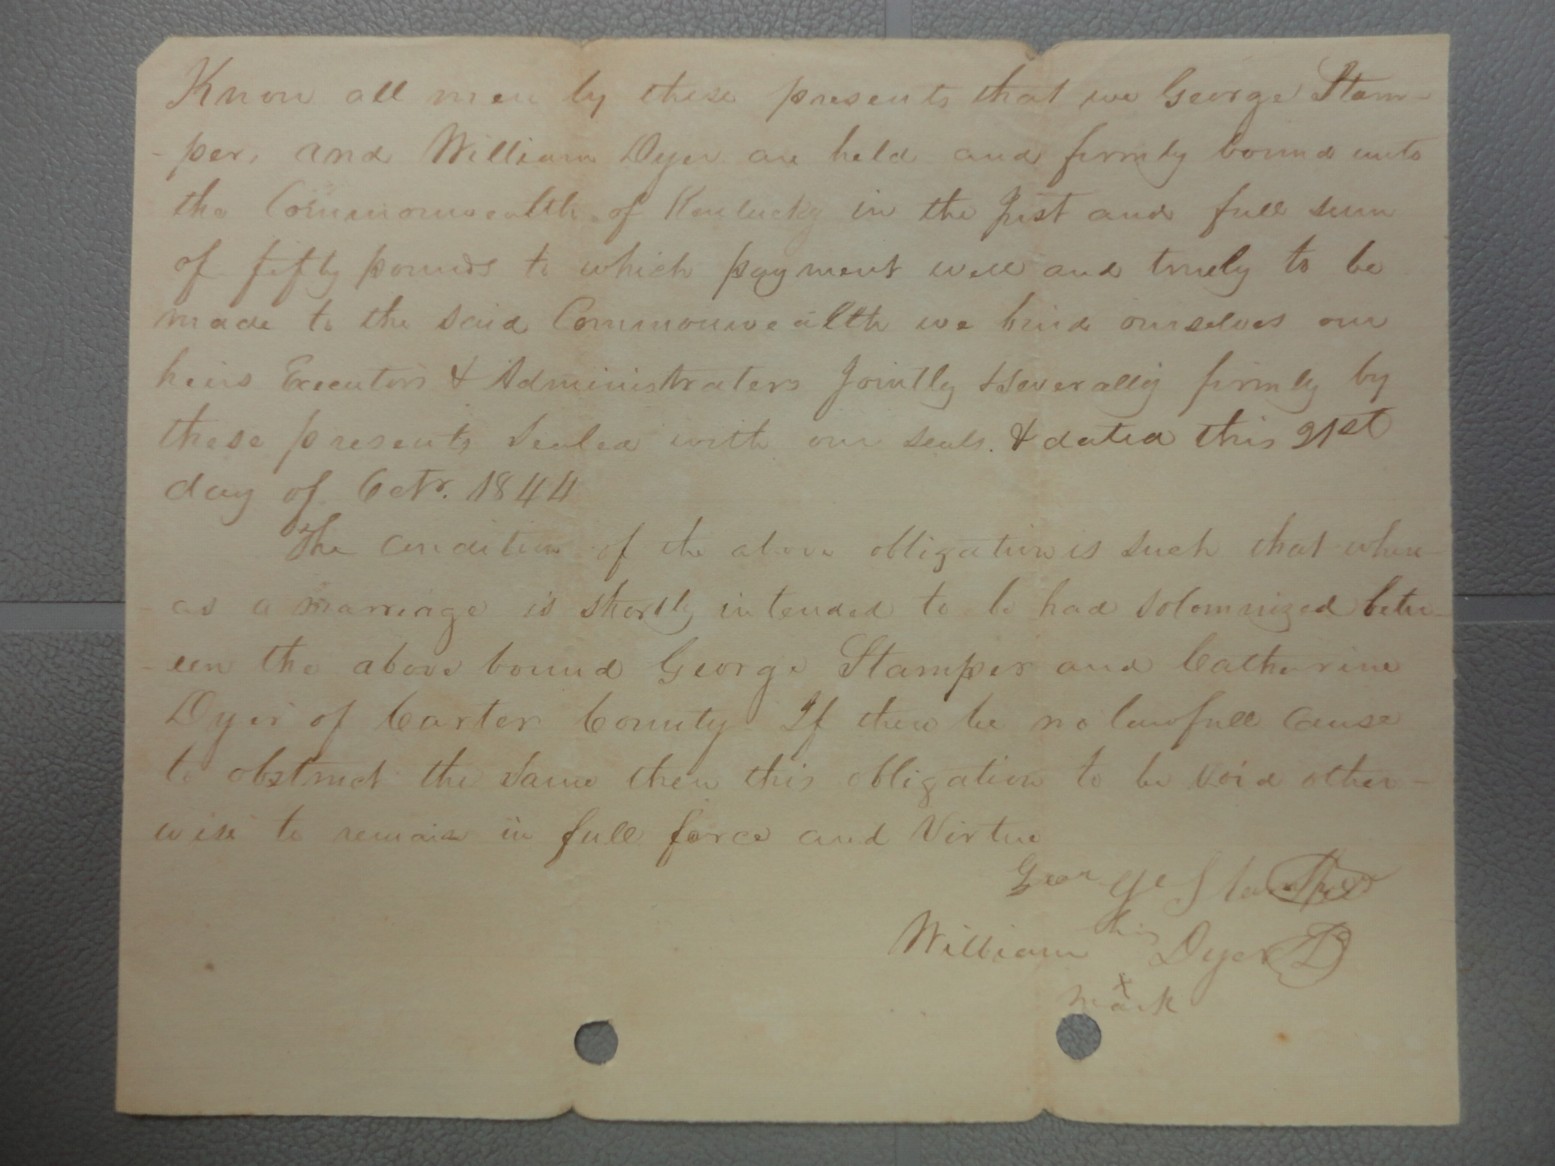 Know all men by these presents that we George Stam-
-per, and William Dyer are held and firmly bound unto
the Commonwealth of Kentucky in the Just and full sum
of fifty pounds to which payment well and truely to be
made to the said Commonwealth we bind ourselves our
heirs Executors & Administraters Jointly & Severally firmly by
these presents Sealed with our seals. & dated this 21st
day of Octr. 1844
The condition of the above obligation is such that where-
-as a marriage is shortly intended to be had Solomnized betw-
-een the above bound George Stamper and Catherine
Dyer of Carter County If there be no lawfull cause
to obstruct the same then this obligation to be void other-
wise to remain in full force and Virtue
George Stamper
William his Dyer
x
mark